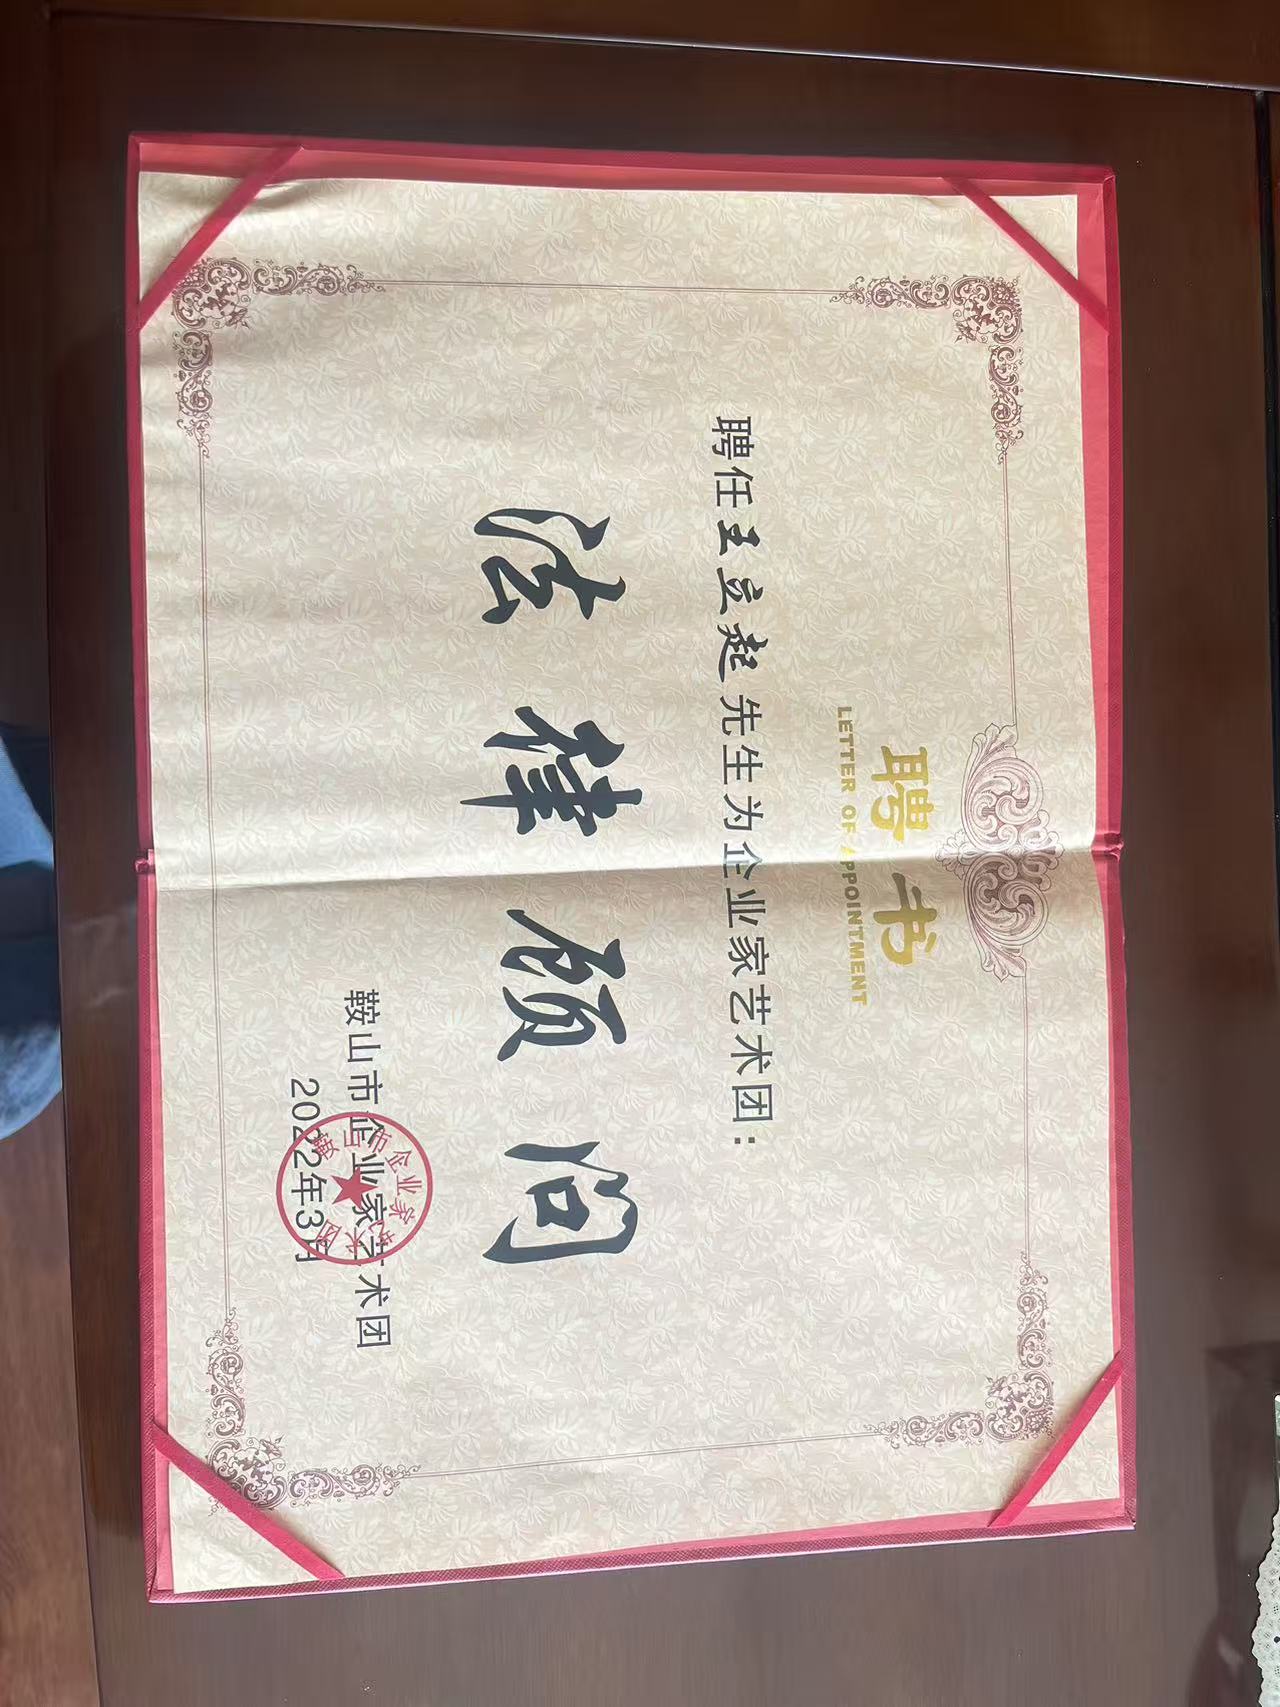 聘书
LETTER OF APPOINTMENT
聘任王立起先生为企业家艺术团：
法律顾问
鞍山市企业家艺术团
2022年3月
鞍山市企业家艺术团